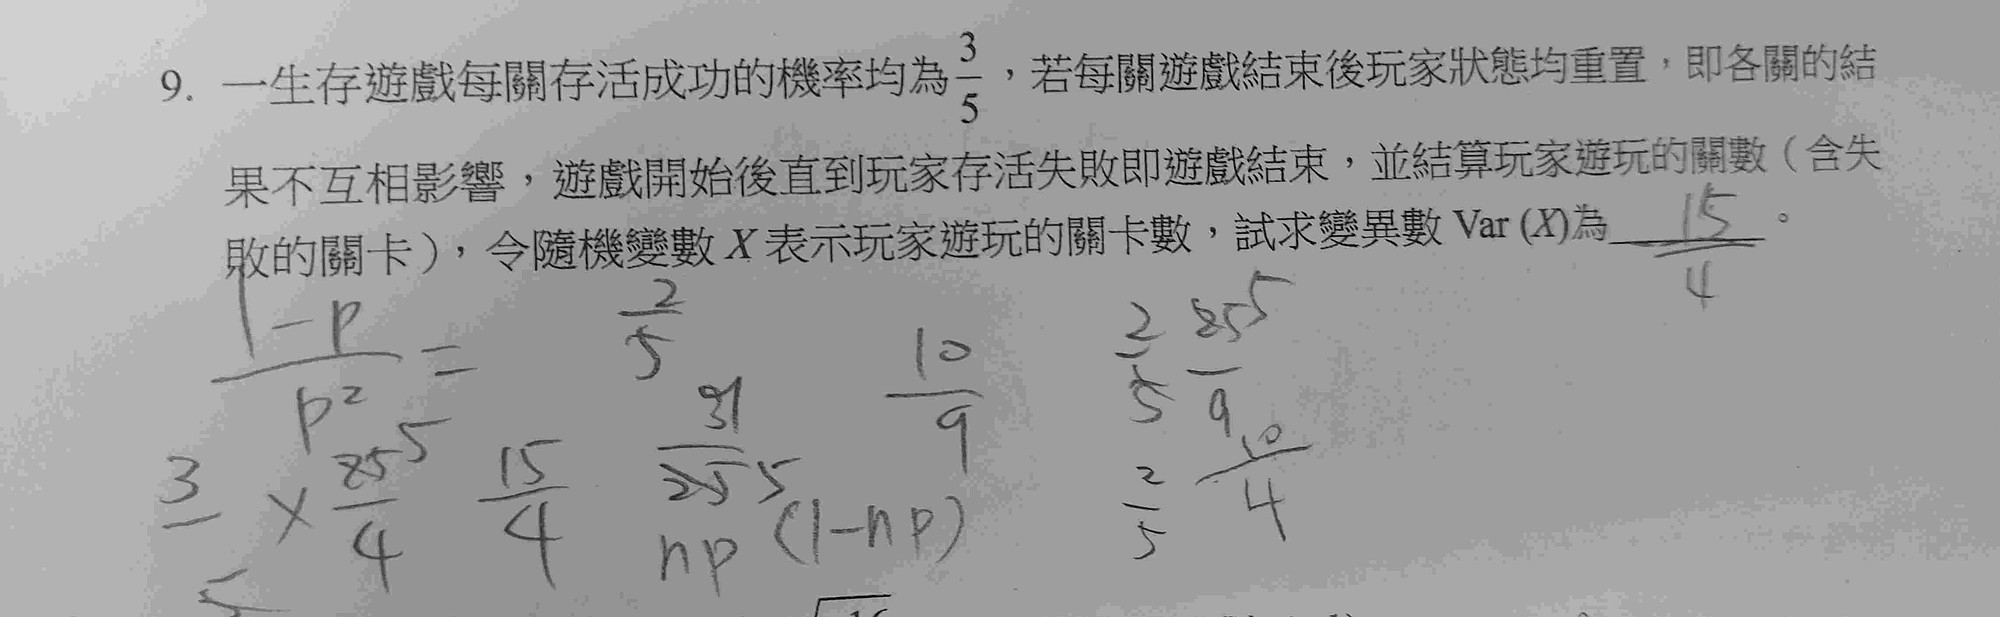 9. 一生存遊戲每關存活成功的機率均為3/5，若每關遊戲結束後玩家狀態均重置，即各關的結
果不互相影響，遊戲開始後直到玩家存活失敗即遊戲結束，並結算玩家遊玩的關數（含失
敗的關卡），令隨機變數 X 表示玩家遊玩的關卡數，試求變異數 Var (X)為 15/4 。
1-p/p² =
2/5
10/9
2/5 25 5/9
3/5 × 25 5/4
15/4
25 5
np (1-np)
2/5
10/4